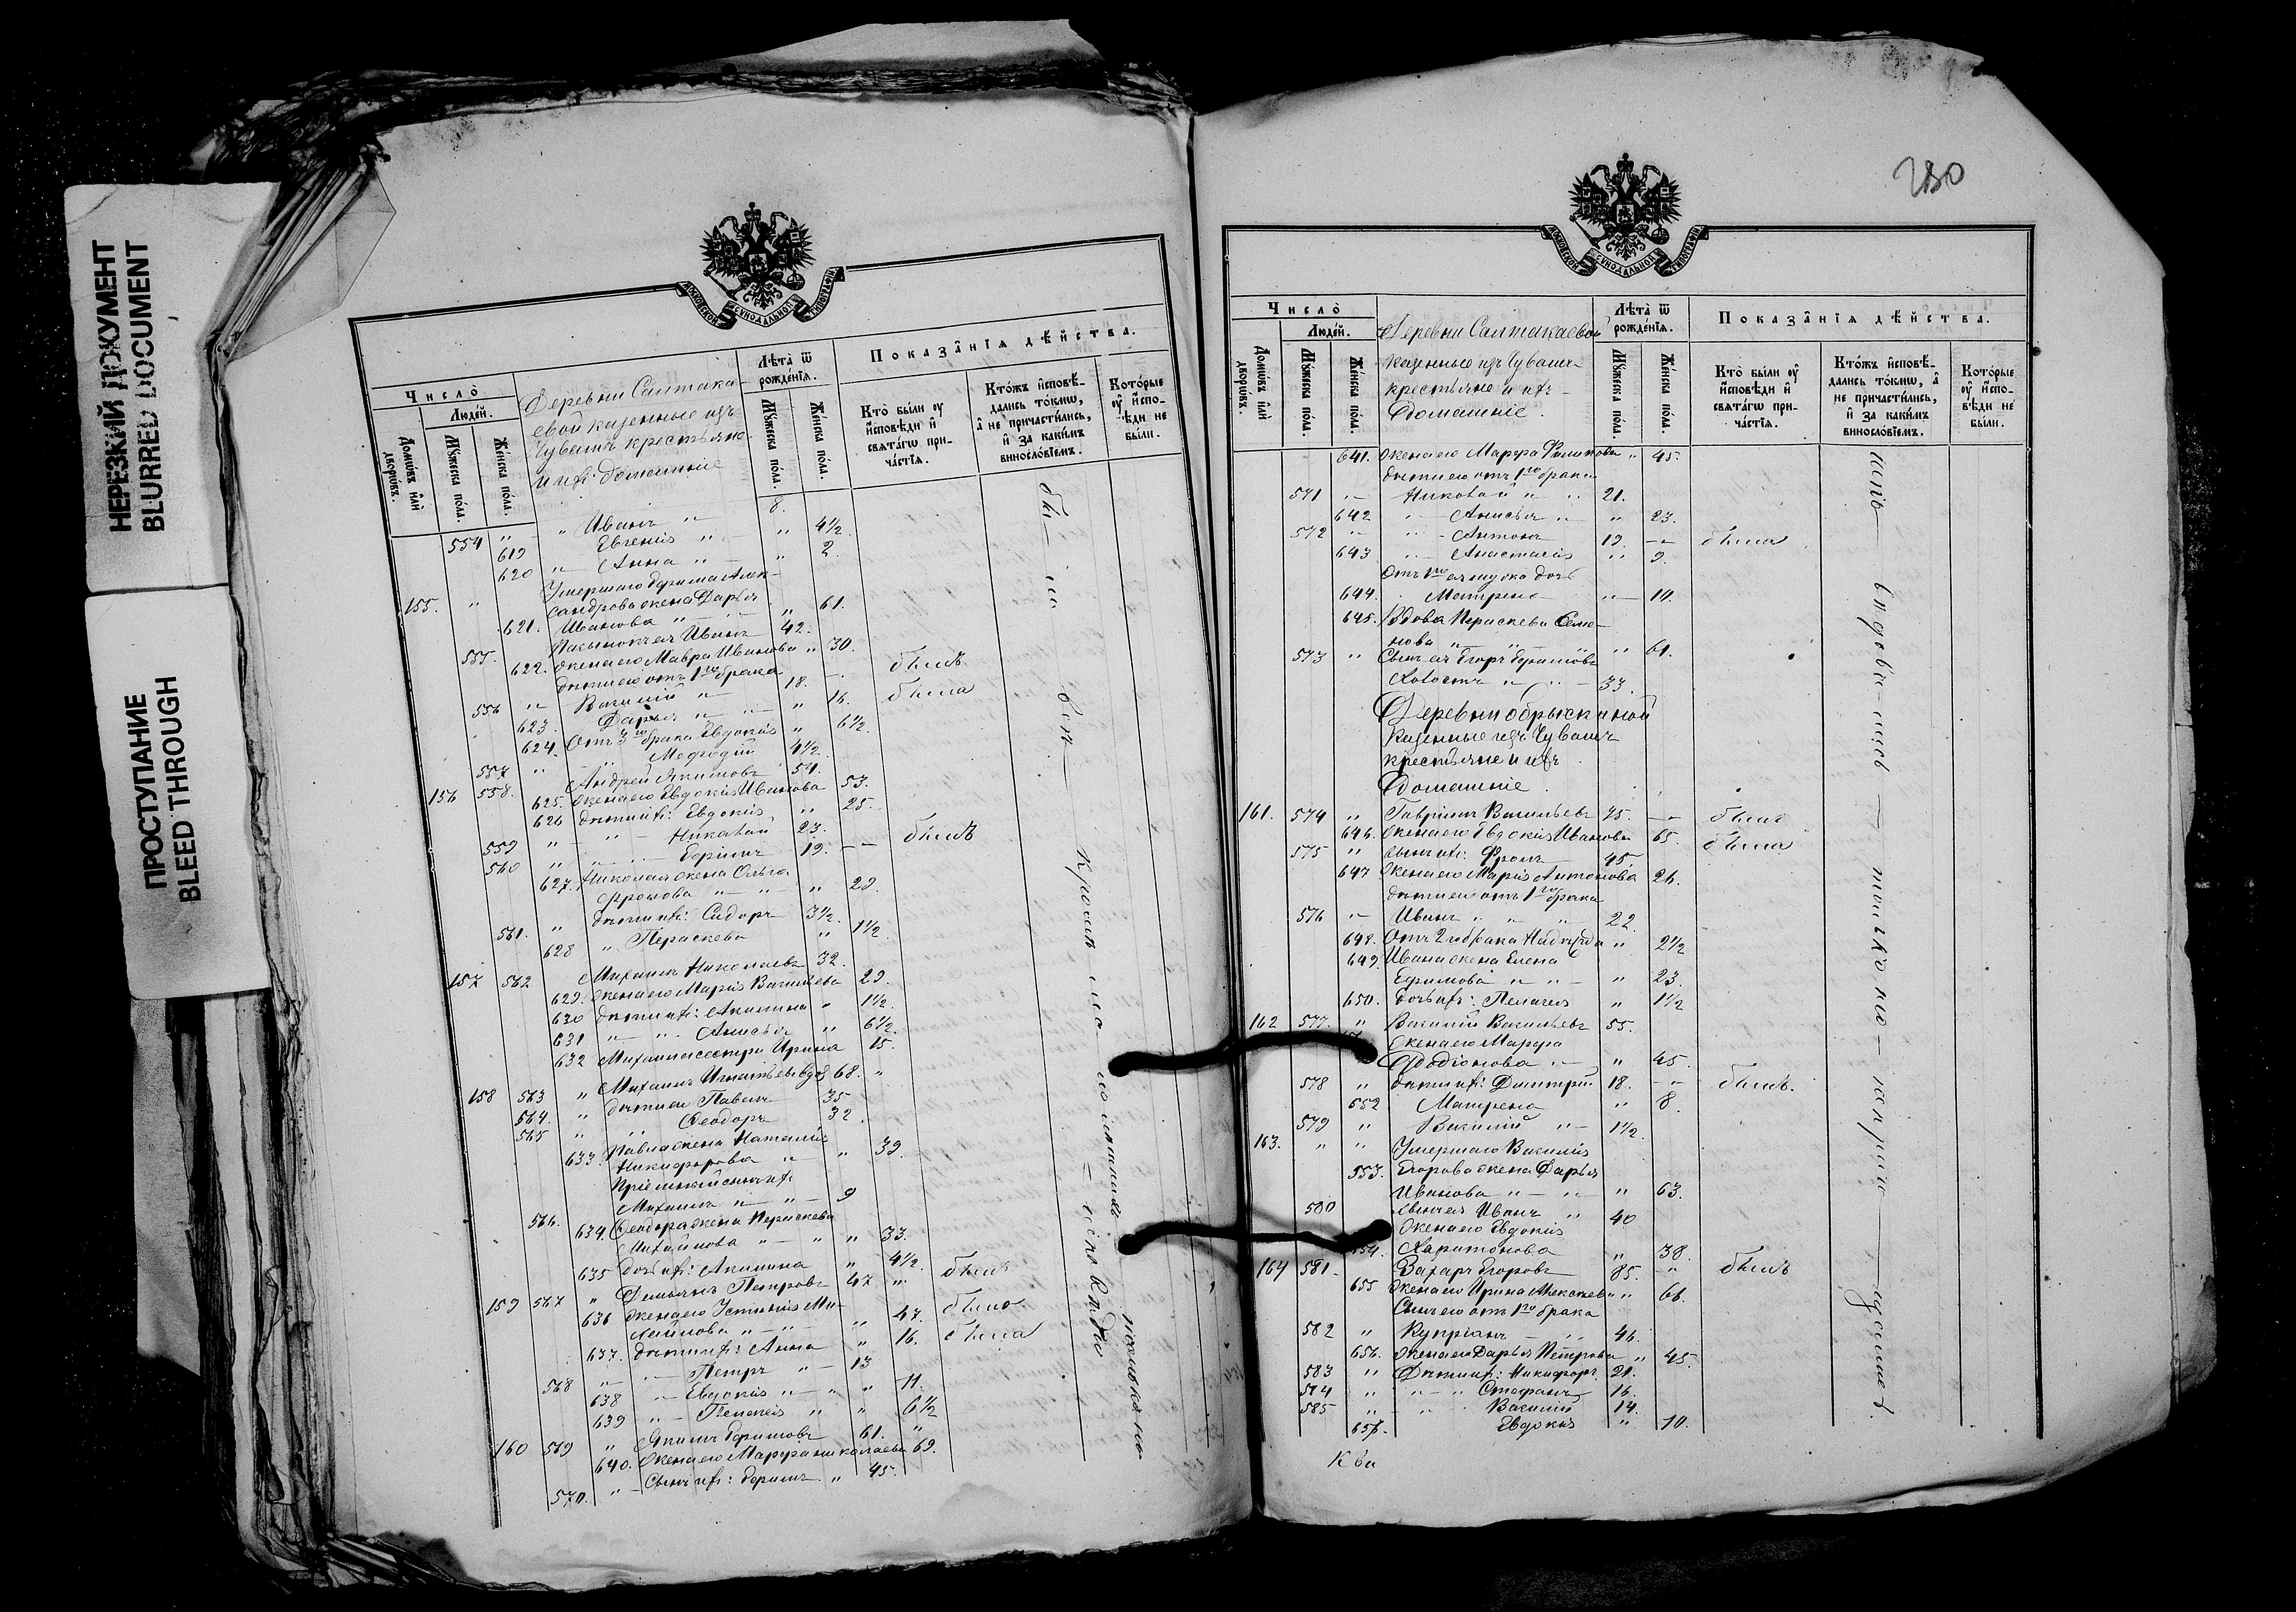 НЕРЕЗКИЙ ДОКУМЕНТ
BLURRED DOCUMENT
ПРОСТУПАНИЕ
BLEED THROUGH
МОСКОВСКОЙ СѴНОДАЛЬНОЙ ТИПОГРАФІИ
Число̀
Люде́й.
Домѡ́въ и҆лѝ дворѡ́въ.
Мꙋ́жеска по́ла.
Же́нска по́ла.
Деревни Салтака-
евой казенные изъ
Чувашъ крестьяне
и ихъ домашніе
Лѣта̀ ѿ рожде́нїѧ.
Мꙋ́жеска по́ла.
Же́нска по́ла.
Показа̑нїѧ дѣ́йства.
Кто̀ бы́ли ᲂу҆ и҆сповѣ́ди и҆ свѧта́гѡ при-
ча́стїѧ.
Кто́жъ и҆сповѣ́-
дались то́кмѡ, а҆ не причасти́лись, и҆ за каки́мъ винослѡ́вїемъ.
Кото́рые ᲂу҆ и҆спо-
вѣ́ди не бы́ли.
554 " " Иванъ " 8.
619 Евгенія " " 4½
620 " Анна " " 2
155. " Умершаго Ефрима Алек-
сандрова жена Дарья
621. Иванова " " 61.
555. Пасынокъ ея Иванъ 42.
622. Жена его Мавра Иванова " 30.
дѣти его отъ 1го брака
556 " Василій " 18. - былъ
623. Дарья " " " 16. была
624. Отъ 3го брака Евдокія " 6½
557 " " Меѳодій 4½
156 558. Андрей Якимовъ 54.
625. Жена его Евдокія Иванова 53.
626 дѣти ихъ: Евдокія " 25.
559 " " Николай 23.
560 " " Ефримъ 19. - былъ
627. Николая жена Ольга
Фролова " " " 29.
561. " дѣти ихъ: Сидоръ 3½
628 " Параскева " 1½
157 562 Михаилъ Николаевъ 32.
629. Жена его Марія Васильева 29.
630 дѣти ихъ: Акилина " 1½
631 " " Анисья " 6½
632 Михаила сестра Ирина 15.
158 563 " Михаилъ Игнатьевъ вдов 68. "
564. " дѣти его Павелъ 35
565 " " Ѳеодоръ 32
633. Павла жена Наталія
Никифорова " " 39.
Пріемный сынъ ихъ
566. Михаилъ " " 9
634. Ѳеодора жена Параскева
Михайлова " " " 33.
635 дочь ихъ: Акилина " 4½
159 567 " Демьянъ Петровъ 47 " былъ
636 Жена его Устинія Ми-
хайлова " " " 47. была
637. дѣти ихъ: Анна " 16. была
568 " " Петръ " 13
638 " Евдокія " " 11.
639 " Пелагея " " 6½
160 569 " Якимъ Ефимовъ 61. "
640. Жена его Марѳа Николаева 69.
570. " Сынъ ихъ: Ефримъ " 45.
280
МОСКОВСКОЙ СѴНОДАЛЬНОЙ ТИПОГРАФІИ
Число̀
Люде́й.
Домѡ́въ и҆лѝ дворѡ́въ.
Мꙋ́жеска по́ла.
Же́нска по́ла.
Деревни Салтакаевой
казенные изъ Чувашъ
крестьяне и ихъ
домашніе.
Лѣта̀ ѿ рожде́нїѧ.
Мꙋ́жеска по́ла.
Же́нска по́ла.
Показа̑нїѧ дѣ́йства.
Кто̀ бы́ли ᲂу҆ и҆сповѣ́ди и҆ свѧта́гѡ при-
ча́стїѧ.
Кто́жъ и҆сповѣ́-
дались то́кмѡ, а҆ не причасти́лись, и҆ за каки́мъ винослѡ́вїемъ.
Кото́рые ᲂу҆ и҆спо-
вѣ́ди не бы́ли.
641. Жена его Марѳа Филипова " 45.
дѣти его отъ 1го брака
571 " Николай " " 21.
642 " Анисья " " 23.
572 " " Антонъ 19. - былъ
643 " Анастасія " 9.
Отъ 1го ея мужа дочь
644. Матрена " 10.
645. Вдова Параскева Семе-
нова " " " 61.
573 " Сынъ ея Егоръ Ефримовъ
Холостъ " " 33.
Деревни Обрыскиной
Казенные изъ Чувашъ
крестьяне и ихъ
домашніе
161. 574 " Гавріилъ Васильевъ 75. - былъ
646. Жена его Евдокія Иванова 65. была
575 " сынъ ихъ: Фролъ 45.
647 Жена его Марія Антонова 26.
дѣти его отъ 1го брака
576 " Иванъ " " " 22.
648. Отъ 2го брака Надежда " 2½
649. Ивана жена Елена
Ефимова " " " 23.
650. дочь ихъ: Пелагея " 1½
162 577. " Василій Васильевъ 55.
Жена его Марѳа
Родіонова " " 45.
578 " дѣти ихъ: Димитрій 18. - былъ.
552 Матрена " 8.
579 " Василій " 1½
163. " " Умершаго Василія
553. Егорова жена Дарья
Иванова " " " 63.
580 сынъ ея Иванъ " 40
Жена его Евдокія
Харитонова " 38.
164 581. Захаръ Егоровъ 85. " былъ
655 Жена его Ирина Алексѣева " 66.
Сынъ его отъ 1го брака
582 " Купріанъ " 46.
656. Жена его Дарья Петрова " 45.
583 " Дѣти ихъ: Никифоръ 21.
584 " " Стефанъ 16.
585 " " Василій 14.
657. Евдокія " 10.